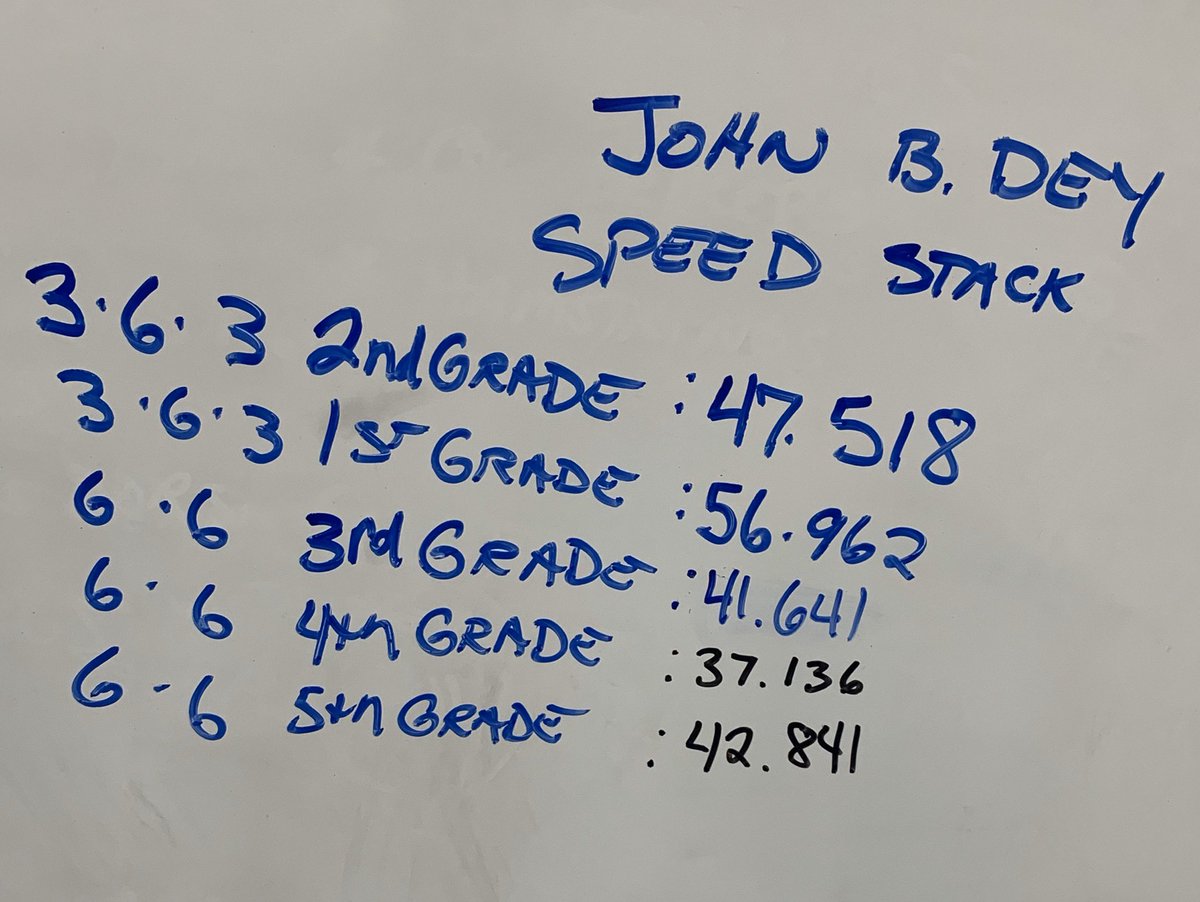 JOHN B. DEY
SPEED STACK
3.6.3 2nd GRADE :47.518
3.6.3 1st GRADE :56.962
6.6 3rd GRADE :41.641
6.6 4th GRADE :37.136
6-6 5th GRADE :42.841